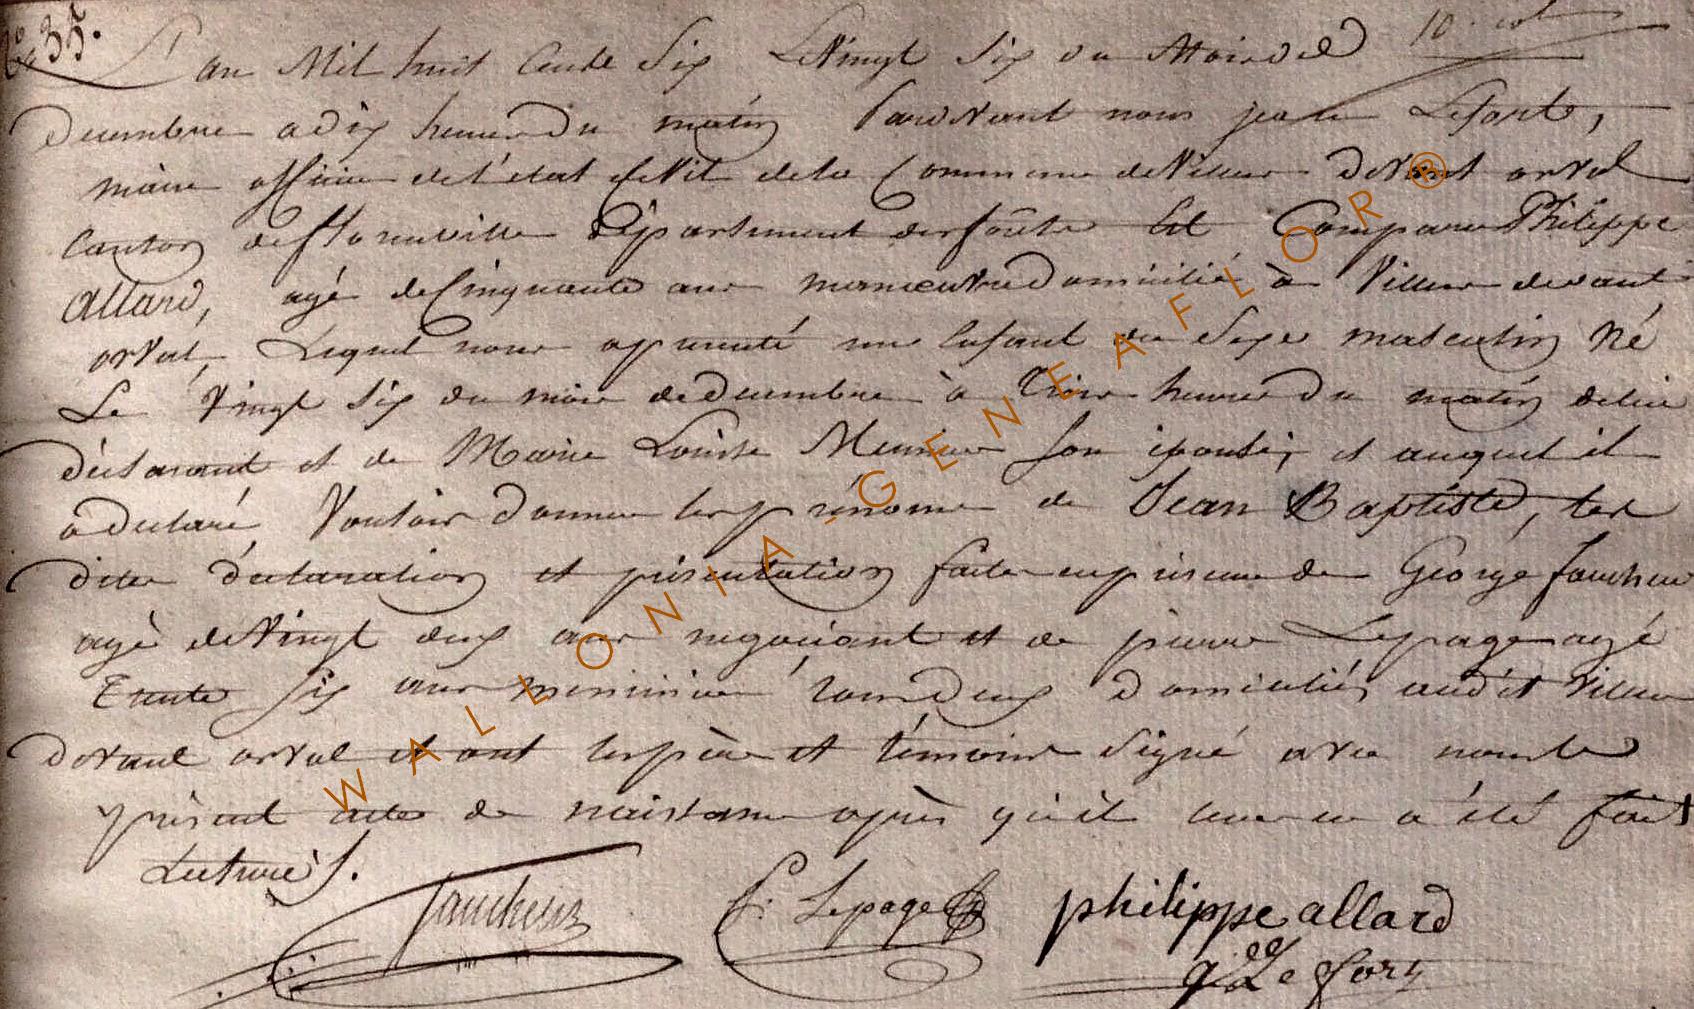 N° 35.
L'an Mil huit Cents Six Le Vingt Six du Mois de
Decembre a dix heures du matin Pardevant nous Leforte,
maire officier de l'état Civil de la Commune de Villers devant orval
Canton de florenville Département des forêts Est Comparu Philippe
allard, agé de Cinquante ans manœuvre domicilié à Villers devant
orval, Lequel nous a presenté un Enfant du Sexe masculin Né
Le Vingt Six du mois de Decembre à Trois heures du matin de lui
déclarant et de Marie Louise Meunier Son épouse, et auquel il
a declaré, Vouloir donner les prénoms de Jean Baptiste, les
dites déclaration et présentation faites en presence de George faucheux
agé de Vingt deux ans negociant et de pierre Lepage agé
Trente Six ans tous deux domiciliés audit Villers
devant orval et ont les père et témoins Signé avec nous le
présent acte de naissance après qu'il leur en a été fait
Lecture ʃ.
faucheux P. Lepage philippe allard
Le fort
WALLONIA-GENEAFLOR ®